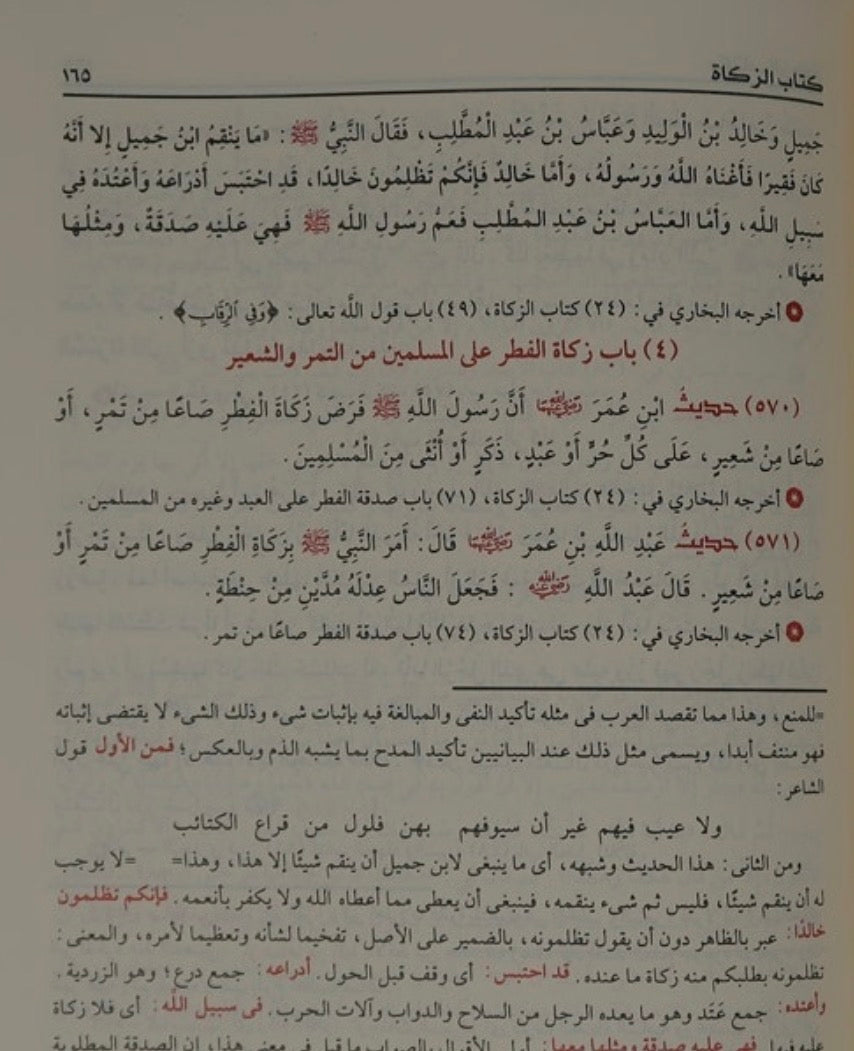 كتاب الزكاة
١٦٥
جَمِيلٍ وَخَالِدُ بْنُ الْوَلِيدِ وَعَبَّاسُ بْنُ عَبْدِ الْمُطَّلِبِ، فَقَالَ النَّبِيُّ ﷺ: «مَا يَنْقِمُ ابْنُ جَمِيلٍ إِلا أَنَّهُ
كَانَ فَقِيرًا فَأَغْنَاهُ اللَّهُ وَرَسُولُهُ، وَأَمَّا خَالِدٌ فَإِنَّكُمْ تَظْلِمُونَ خَالِدًا، قَدِ احْتَبَسَ أَدْرَاعَهُ وَأَعْتُدَهُ فِي
سَبِيلِ اللَّهِ، وَأَمَّا العَبَّاسُ بْنُ عَبْدِ المُطَّلِبِ فَعَمُّ رَسُولِ اللَّهِ ﷺ فَهِيَ عَلَيْهِ صَدَقَةٌ، وَمِثْلُهَا
مَعَهَا».
أخرجه البخاري في: (٢٤) كتاب الزكاة، (٤٩) باب قول اللَّه تعالى: ﴿وَفِي ٱلرِّقَابِ﴾.
(٤) باب زكاة الفطر على المسلمين من التمر والشعير
(٥٧٠) حديثُ ابْنِ عُمَرَ رَضِيَ اللَّهُ عَنْهُمَا أَنَّ رَسُولَ اللَّهِ ﷺ فَرَضَ زَكَاةَ الْفِطْرِ صَاعًا مِنْ تَمْرٍ، أَوْ
صَاعًا مِنْ شَعِيرٍ، عَلَى كُلِّ حُرٍّ أَوْ عَبْدٍ، ذَكَرٍ أَوْ أُنْثَى مِنَ الْمُسْلِمِينَ.
أخرجه البخاري في: (٢٤) كتاب الزكاة، (٧١) باب صدقة الفطر على العبد وغيره من المسلمين.
(٥٧١) حديثُ عَبْدِ اللَّهِ بْنِ عُمَرَ رَضِيَ اللَّهُ عَنْهُمَا قَالَ: أَمَرَ النَّبِيُّ ﷺ بِزَكَاةِ الْفِطْرِ صَاعًا مِنْ تَمْرٍ أَوْ
صَاعًا مِنْ شَعِيرٍ. قَالَ عَبْدُ اللَّهِ رَضِيَ اللَّهُ عَنْهُ: فَجَعَلَ النَّاسُ عِدْلَهُ مُدَّيْنِ مِنْ حِنْطَةٍ.
أخرجه البخاري في: (٢٤) كتاب الزكاة، (٧٤) باب صدقة الفطر صاعًا من تمر.
=للمنع، وهذا مما تقصد العرب فى مثله تأكيد النفى والمبالغة فيه بإثبات شىء وذلك الشىء لا يقتضى إثباته
فهو منتف أبدا، ويسمى مثل ذلك عند البيانيين تأكيد المدح بما يشبه الذم وبالعكس؛ فمن الأول قول
الشاعر:
ولا عيب فيهم غير أن سيوفهم بهن فلول من قراع الكتائب
ومن الثانى: هذا الحديث وشبهه، أى ما ينبغى لابن جميل أن ينقم شيئًا إلا هذا، وهذا= =لا يوجب
له أن ينقم شيئًا، فليس ثم شىء ينقمه، فينبغى أن يعطى مما أعطاه الله ولا يكفر بأنعمه. فإنكم تظلمون
خالدًا: عبر بالظاهر دون أن يقول تظلمونه، بالضمير على الأصل، تفخيما لشأنه وتعظيما لأمره، والمعنى:
تظلمونه بطلبكم منه زكاة ما عنده. قد احتبس: أى وقف قبل الحول. أدراعه: جمع درع؛ وهو الزردية.
وأعتده: جمع عَتَد وهو ما يعده الرجل من السلاح والدواب وآلات الحرب. فى سبيل اللَّه: أى فلا زكاة
عليه فيها. فهى عليه صدقة ومثلها معها: أولى الأقوال بالصواب ما قيل فى معنى هذا، إن الصدقة المطلوبة